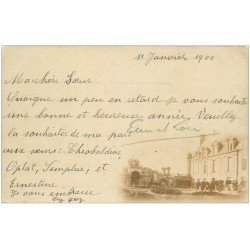 11 Janvier 1900
Ma chère Sœur
Quoique un peu en retard je vous souhaite
une bonne et heureuse année, Veuillez
la souhaiter de ma part
aux sœurs: Théobaldine,
Optat, Simplice, et
Ernestine
Je vous embrasse